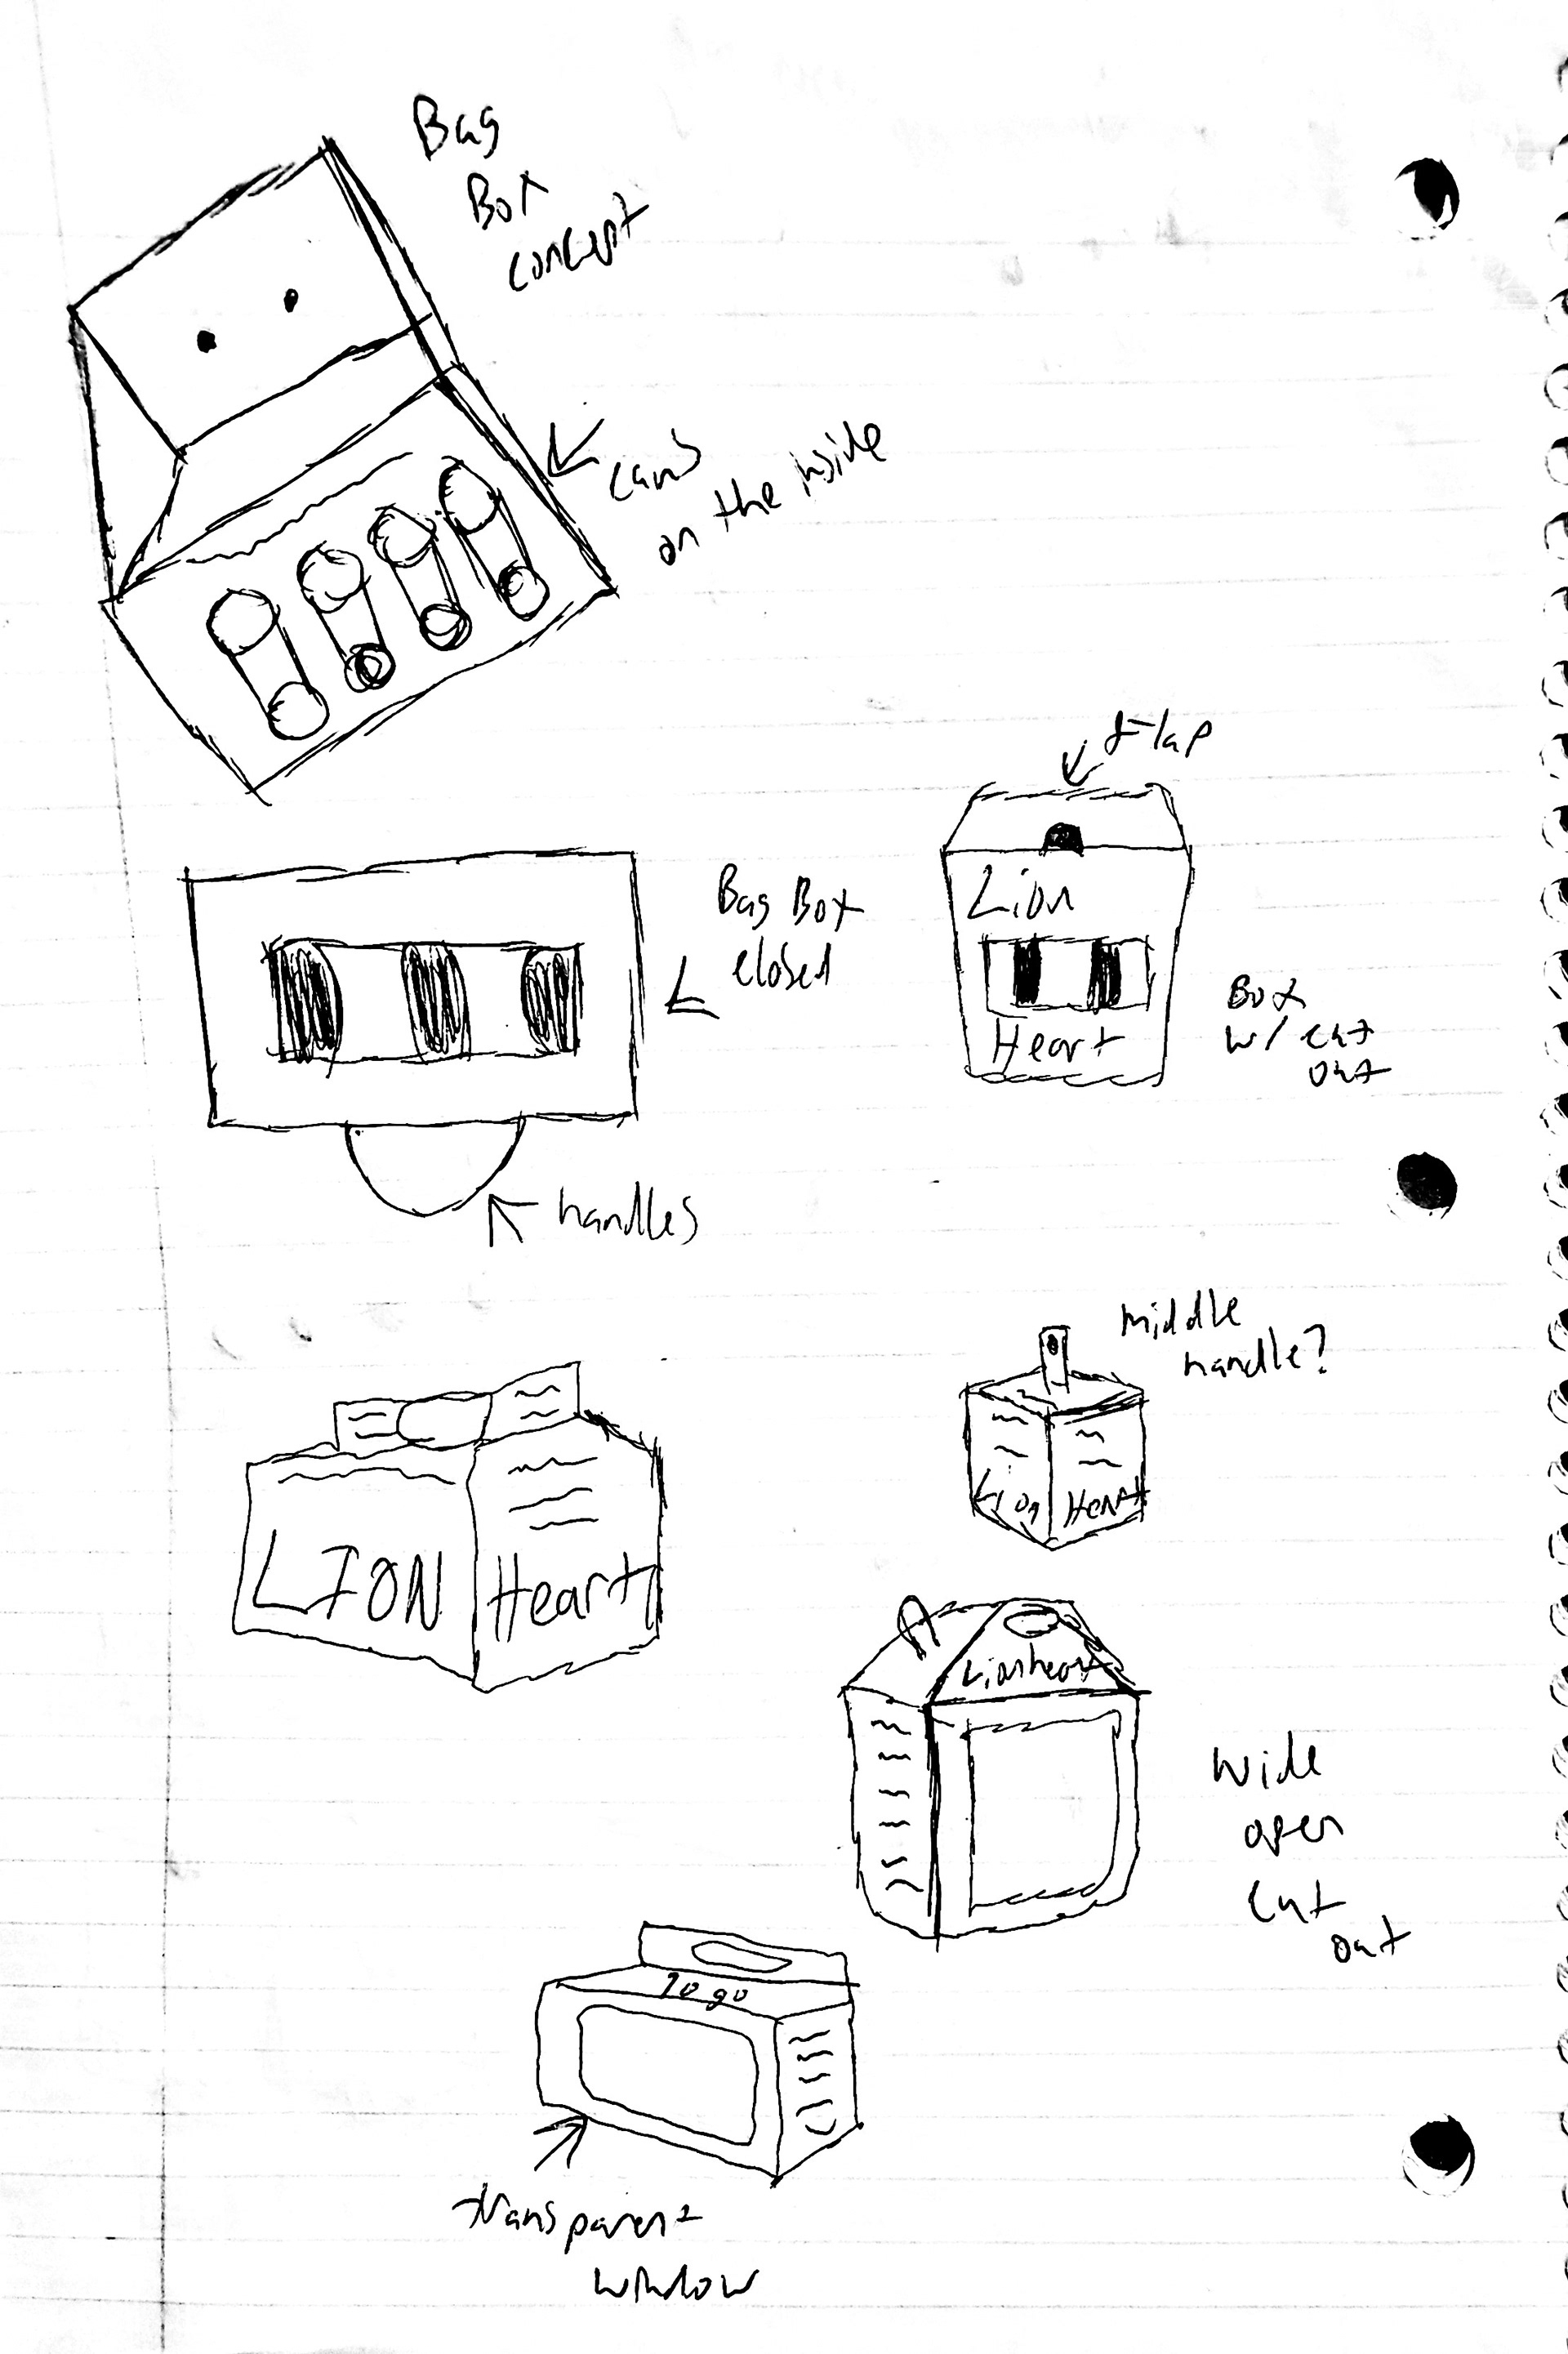 Bag
Box
concept
cans
on the inside
Flap
Bag Box
closed
Lion
Heart
Box
w/ cut
out
handles
middle
handle?
LION
Heart
Lion
Heart
Lionheart
Wide
open
cut
out
To go
transparent
window